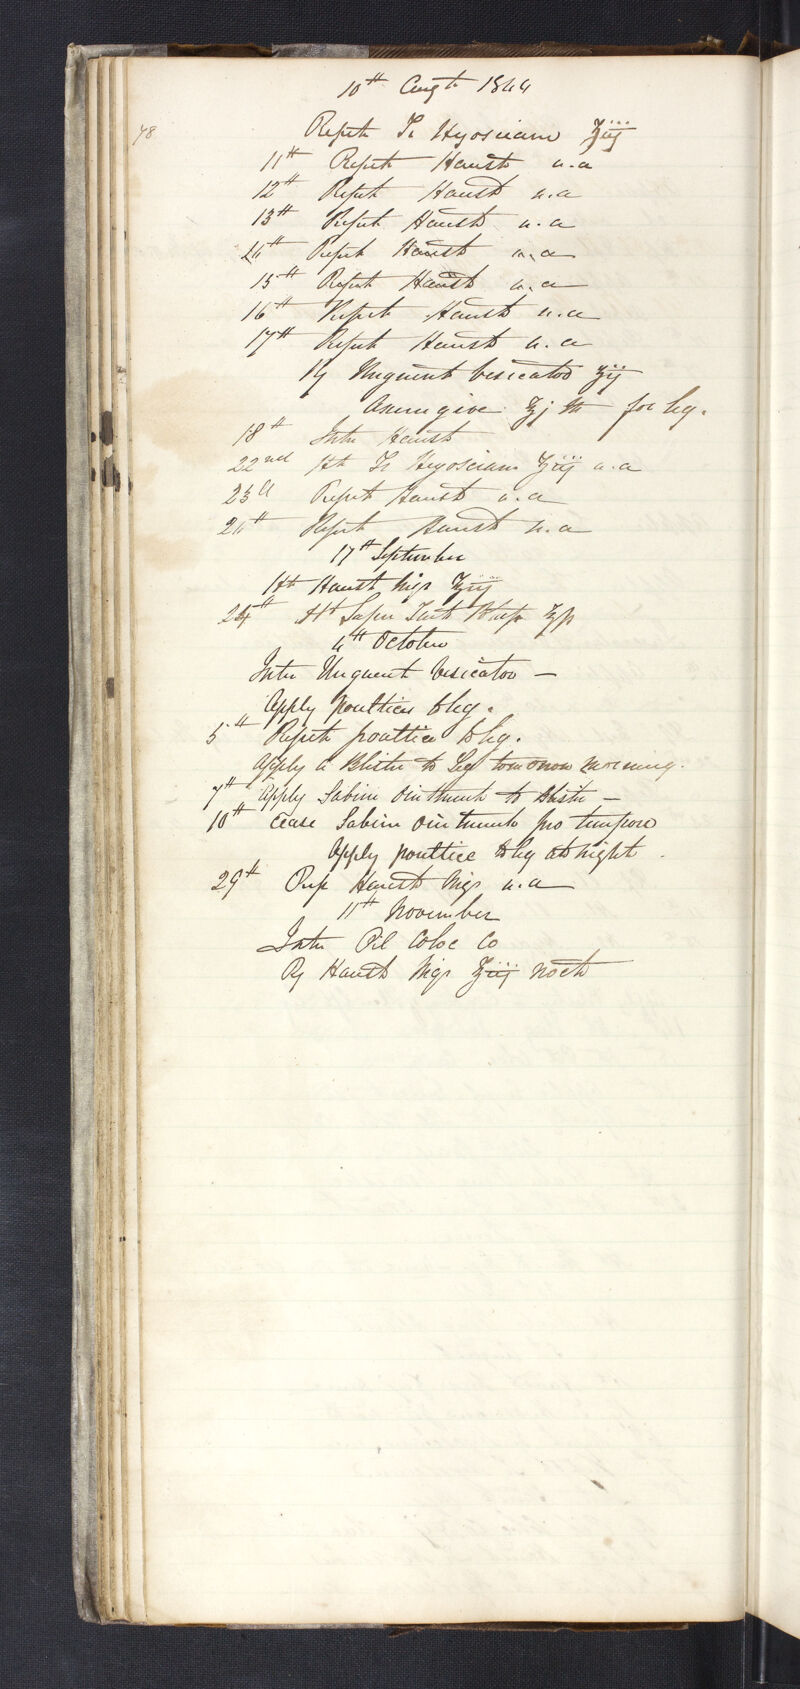 10th Augt 1844
78
Repet Tr Hyosciam ℥iij
11th Repet Haust u.a
12th Repet Haust u.a
13th Repet Haust u.a
14th Repet Haust u.a
15th Repet Haust u.a
16th Repet Haust u.a
17th Repet Haust u.a
Rx Unguent Vesicator ℥ij
℥j for leg.
18th Intr Haust
22nd Ht Tr Hyosciam ℥iij u.a
23d Repet Haust u.a
24th Repet Haust u.a
17th September
Ht Haust Nigr ℥iij
24th Ht Super Tart Potass
4th October
Intr Unguent Vesicator —
Apply poultices to leg.
5th Repeat poultice to leg.
Apply a Blister to Leg tomorrow morning.
7th Apply Sabine Ointment to Blister —
10th Cease Sabine Ointment pro tempore
Apply poultice to leg at night.
29th Rep Haust Nigr u.a
11th November
Intr Pil Coloc Co
Rx Haust Nigr ℥iij nocte